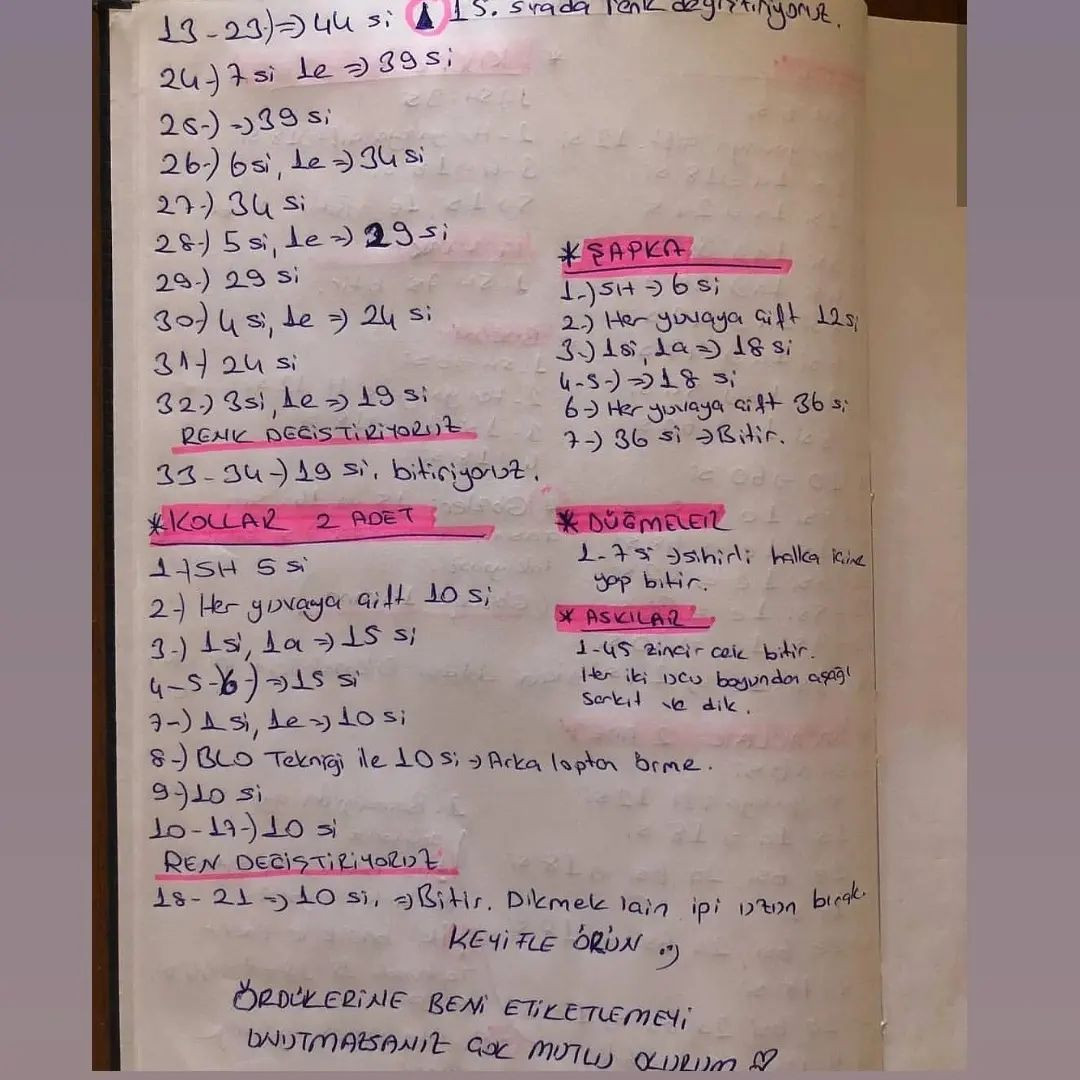 13-23)⇒44 si ▲ 15. sırada renk değiştiriyoruz.
24-) 7 si 1e ⇒ 39 si
25-) ⇒ 39 si
26-) 6 si, 1e ⇒ 34 si
27-) 34 si
28-) 5 si, 1e ⇒ 29 si
29-) 29 si
30-) 4 si, 1e ⇒ 24 si
31-) 24 si
32-) 3si, 1e ⇒ 19 si
RENK DEĞİSTİRİYORUZ
33-34-) 19 si. bitiriyoruz.
*KOLLAR 2 ADET
1-) SH 5 si
2-) Her yuvaya çift 10 si
3-) 1si, 1a ⇒ 15 si
4-5-6-) ⇒ 15 si
7-) 1 si, 1e ⇒ 10 si
8-) BLO Tekniği ile 10 si → Arka loptan örme.
9-) 10 si
10-17-) 10 si
REN DEĞİŞTİRİYORUZ
18-21 ⇒ 10 si, ⇒ Bitir. Dikmek için ipi uzun bırak.
* ŞAPKA
1-) SH → 6 si
2-) Her yuvaya çift 12si
3-) 1si, 1a ⇒ 18 si
4-5-) ⇒ 18 si
6-) Her yuvaya çift 36 si
7-) 36 si → Bitir.
* DÜĞMELER
1-7 si → sihirli halka içine
yap bitir.
* ASKILAR
1-45 zincir çek bitir.
Her iki ucu boyundan aşağı
Sarkıt ve dik.
KEYİFLE ÖRÜN :)
ÖRDÜKERİNE BENİ ETİKETLEMEYİ
UNUTMAZSANIZ ÇOK MUTLU OLURUM ♡